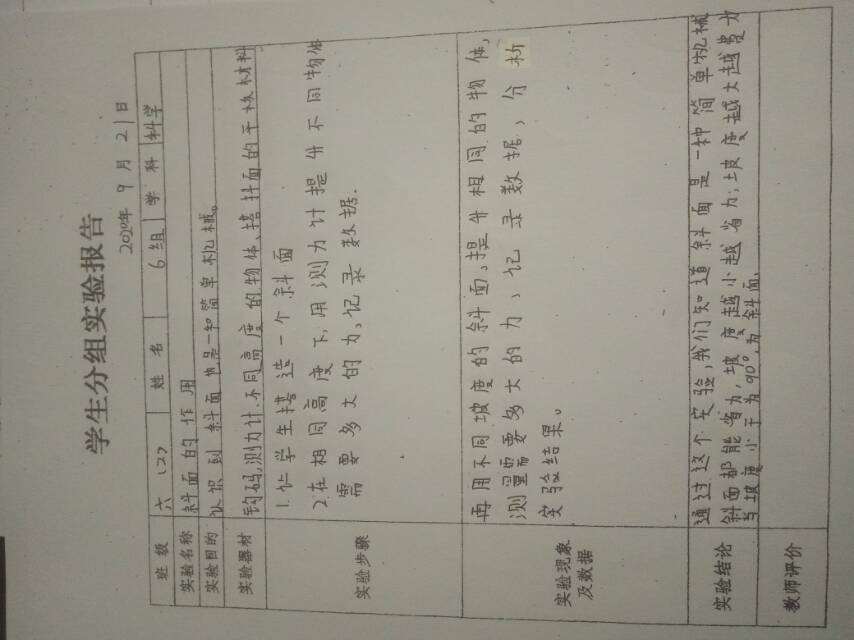 学生分组实验报告
2020年 9 月 21日
班 级 六 (2) 姓 名 6组 学 科 科学
实验名称 斜面的作用
实验目的 认识到斜面也是一种简单机械。
实验器材 钩码,测力计.不同高度的物体.搭斜面的干板材料
实验步骤
1. 让学生搭造一个斜面
2. 在相同高度下,用测力计提升不同物体
需要多大的力,记录数据.
实验现象
及数据
再用不同坡度的斜面,提升相同的物体,
测量需要多大的力,记录数据,分析
实验结果。
实验结论
通过这个实验,我们知道斜面是一种简单机械
斜面都能省力,坡度越小越省力;坡度越大越费力
当坡度小于为90°.为斜面.
教师评价